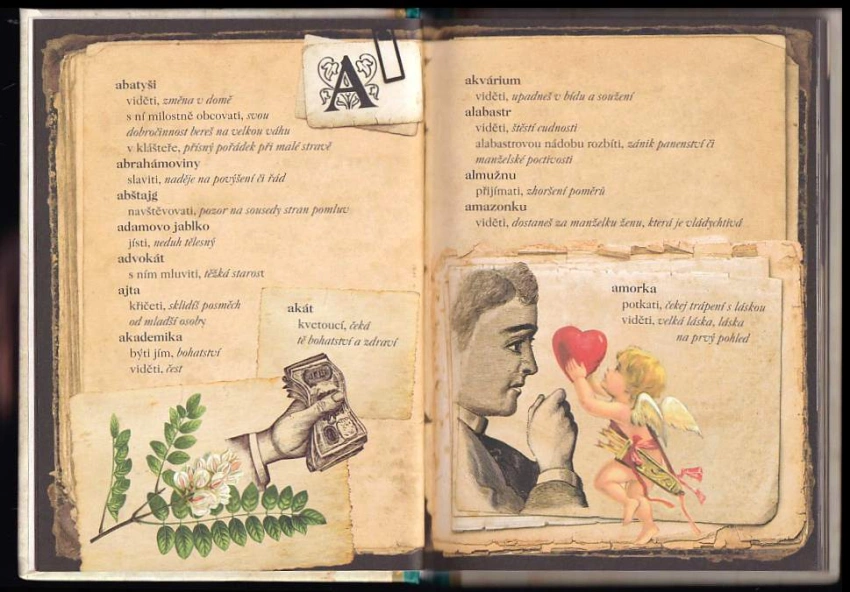 A
abatyši
viděti, změna v domě
s ní milostně obcovati, svou
dobročinnost bereš na velkou váhu
v klášteře, přísný pořádek při malé stravě
abrahámoviny
slaviti, naděje na povýšení či řád
abštajg
navštěvovati, pozor na sousedy stran pomluv
adamovo jablko
jísti, neduh tělesný
advokát
s ním mluviti, těžká starost
ajta
křičeti, sklidíš posměch
od mladší osoby
akademika
býti jím, bohatství
viděti, čest
akát
kvetoucí, čeká
tě bohatství a zdraví
akvárium
viděti, upadneš v bídu a soužení
alabastr
viděti, štěstí cudnosti
alabastrovou nádobu rozbíti, zánik panenství či
manželské poctivosti
almužnu
přijímati, zhoršení poměrů
amazonku
viděti, dostaneš za manželku ženu, která je vládychtivá
amorka
potkati, čekej trápení s láskou
viděti, velká láska, láska
na prvý pohled